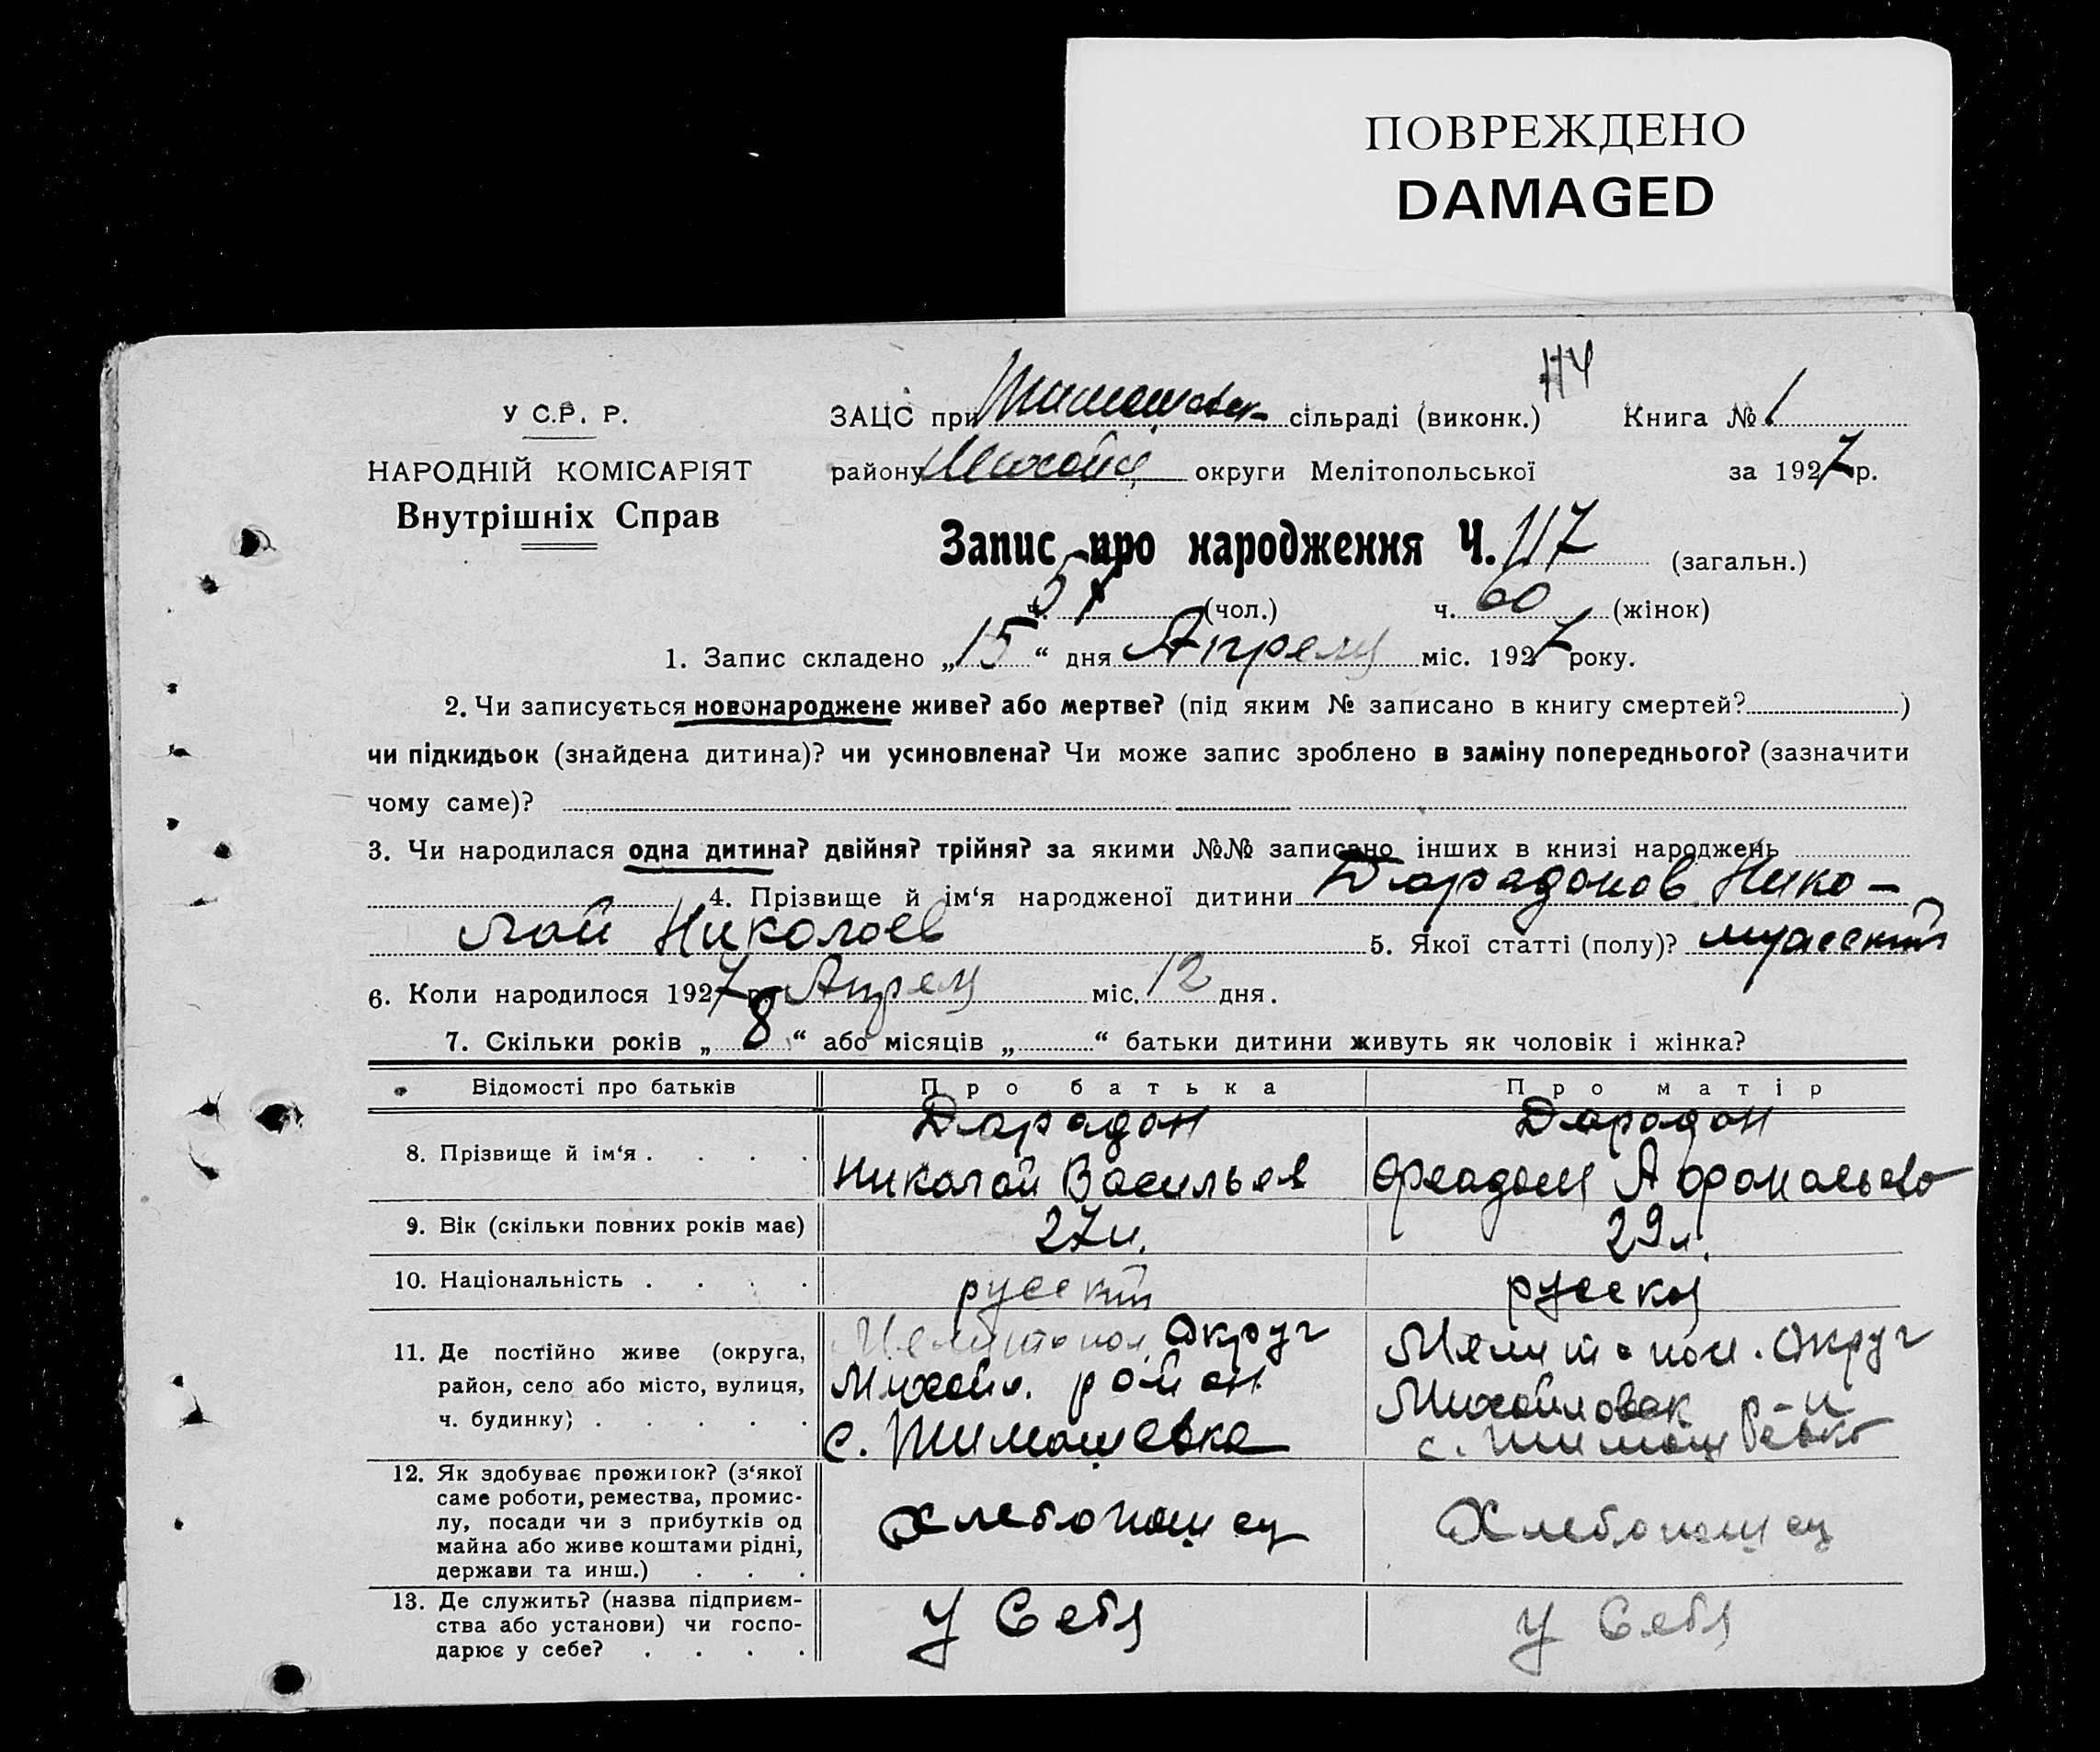 ПОВРЕЖДЕНО
DAMAGED
У С.Р.Р.
НАРОДНІЙ КОМІСАРІЯТ
Внутрішніх Справ
ЗАЦС при Тимошовск- сільраді (виконк.) Книга № 1
району Михайл. округи Мелітопольської за 1927 р.
Запис про народження Ч. 117 (загальн.)
57 (чол.) ч. 60 (жінок)
1. Запис складено „15“ дня Апреля міс. 1927 року.
2. Чи записується новонароджене живе? або мертве? (під яким № записано в книгу смертей? )
чи підкидьок (знайдена дитина)? чи усиновлена? Чи може запис зроблено в заміну попереднього? (зазначити
чому саме)?
3. Чи народилася одна дитина? двійня? трійня? за якими №№ записано інших в книзі народжень
4. Прізвище й ім‘я народженої дитини Дарадонов Нико-
лай Николаев 5. Якої статті (полу)? мужеский
6. Коли народилося 1927 р. Апреля міс. 12 дня.
7. Скільки років „8“ або місяців „ “ батьки дитини живуть як чоловік і жінка?
Відомості про батьків Про батька Про матір
8. Прізвище й ім‘я . . . . Дарадон Дарадон
Николай Васильев Афанасьевно
9. Вік (скільки повних років має) 27 л. 29 л.
10. Національність . . . . русский русская
11. Де постійно живе (округа, Мелитопол. Округ Мелитопол. Округ
район, село або місто, вулиця, Михайл. район Михайловск р-н
ч. будинку) . . . . . с. Тимошевка с. Тимошевка
12. Як здобуває прожиток? (з‘якої
саме роботи, ремества, промис-
лу, посади чи з прибутків од Хлебопашец Хлебопашец
майна або живе коштами рідні,
держави та инш.) . . .
13. Де служить? (назва підприєм-
ства або установи) чи госпо- У Себя У Себя
дарює у себе? . . . .